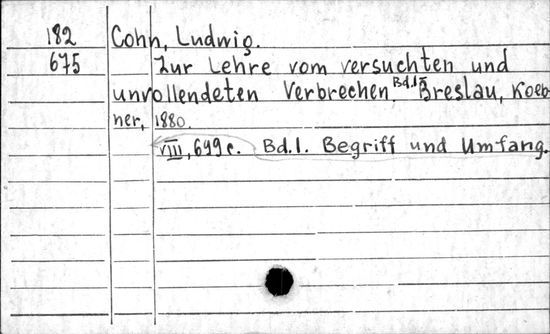 182 Cohn, Ludwig.
675 Zur Lehre vom versuchten und
unvollendeten Verbrechen, Bd. I Breslau, Koeb-
ner, 1880.
VIII, 699 c. Bd. 1. Begriff und Umfang.